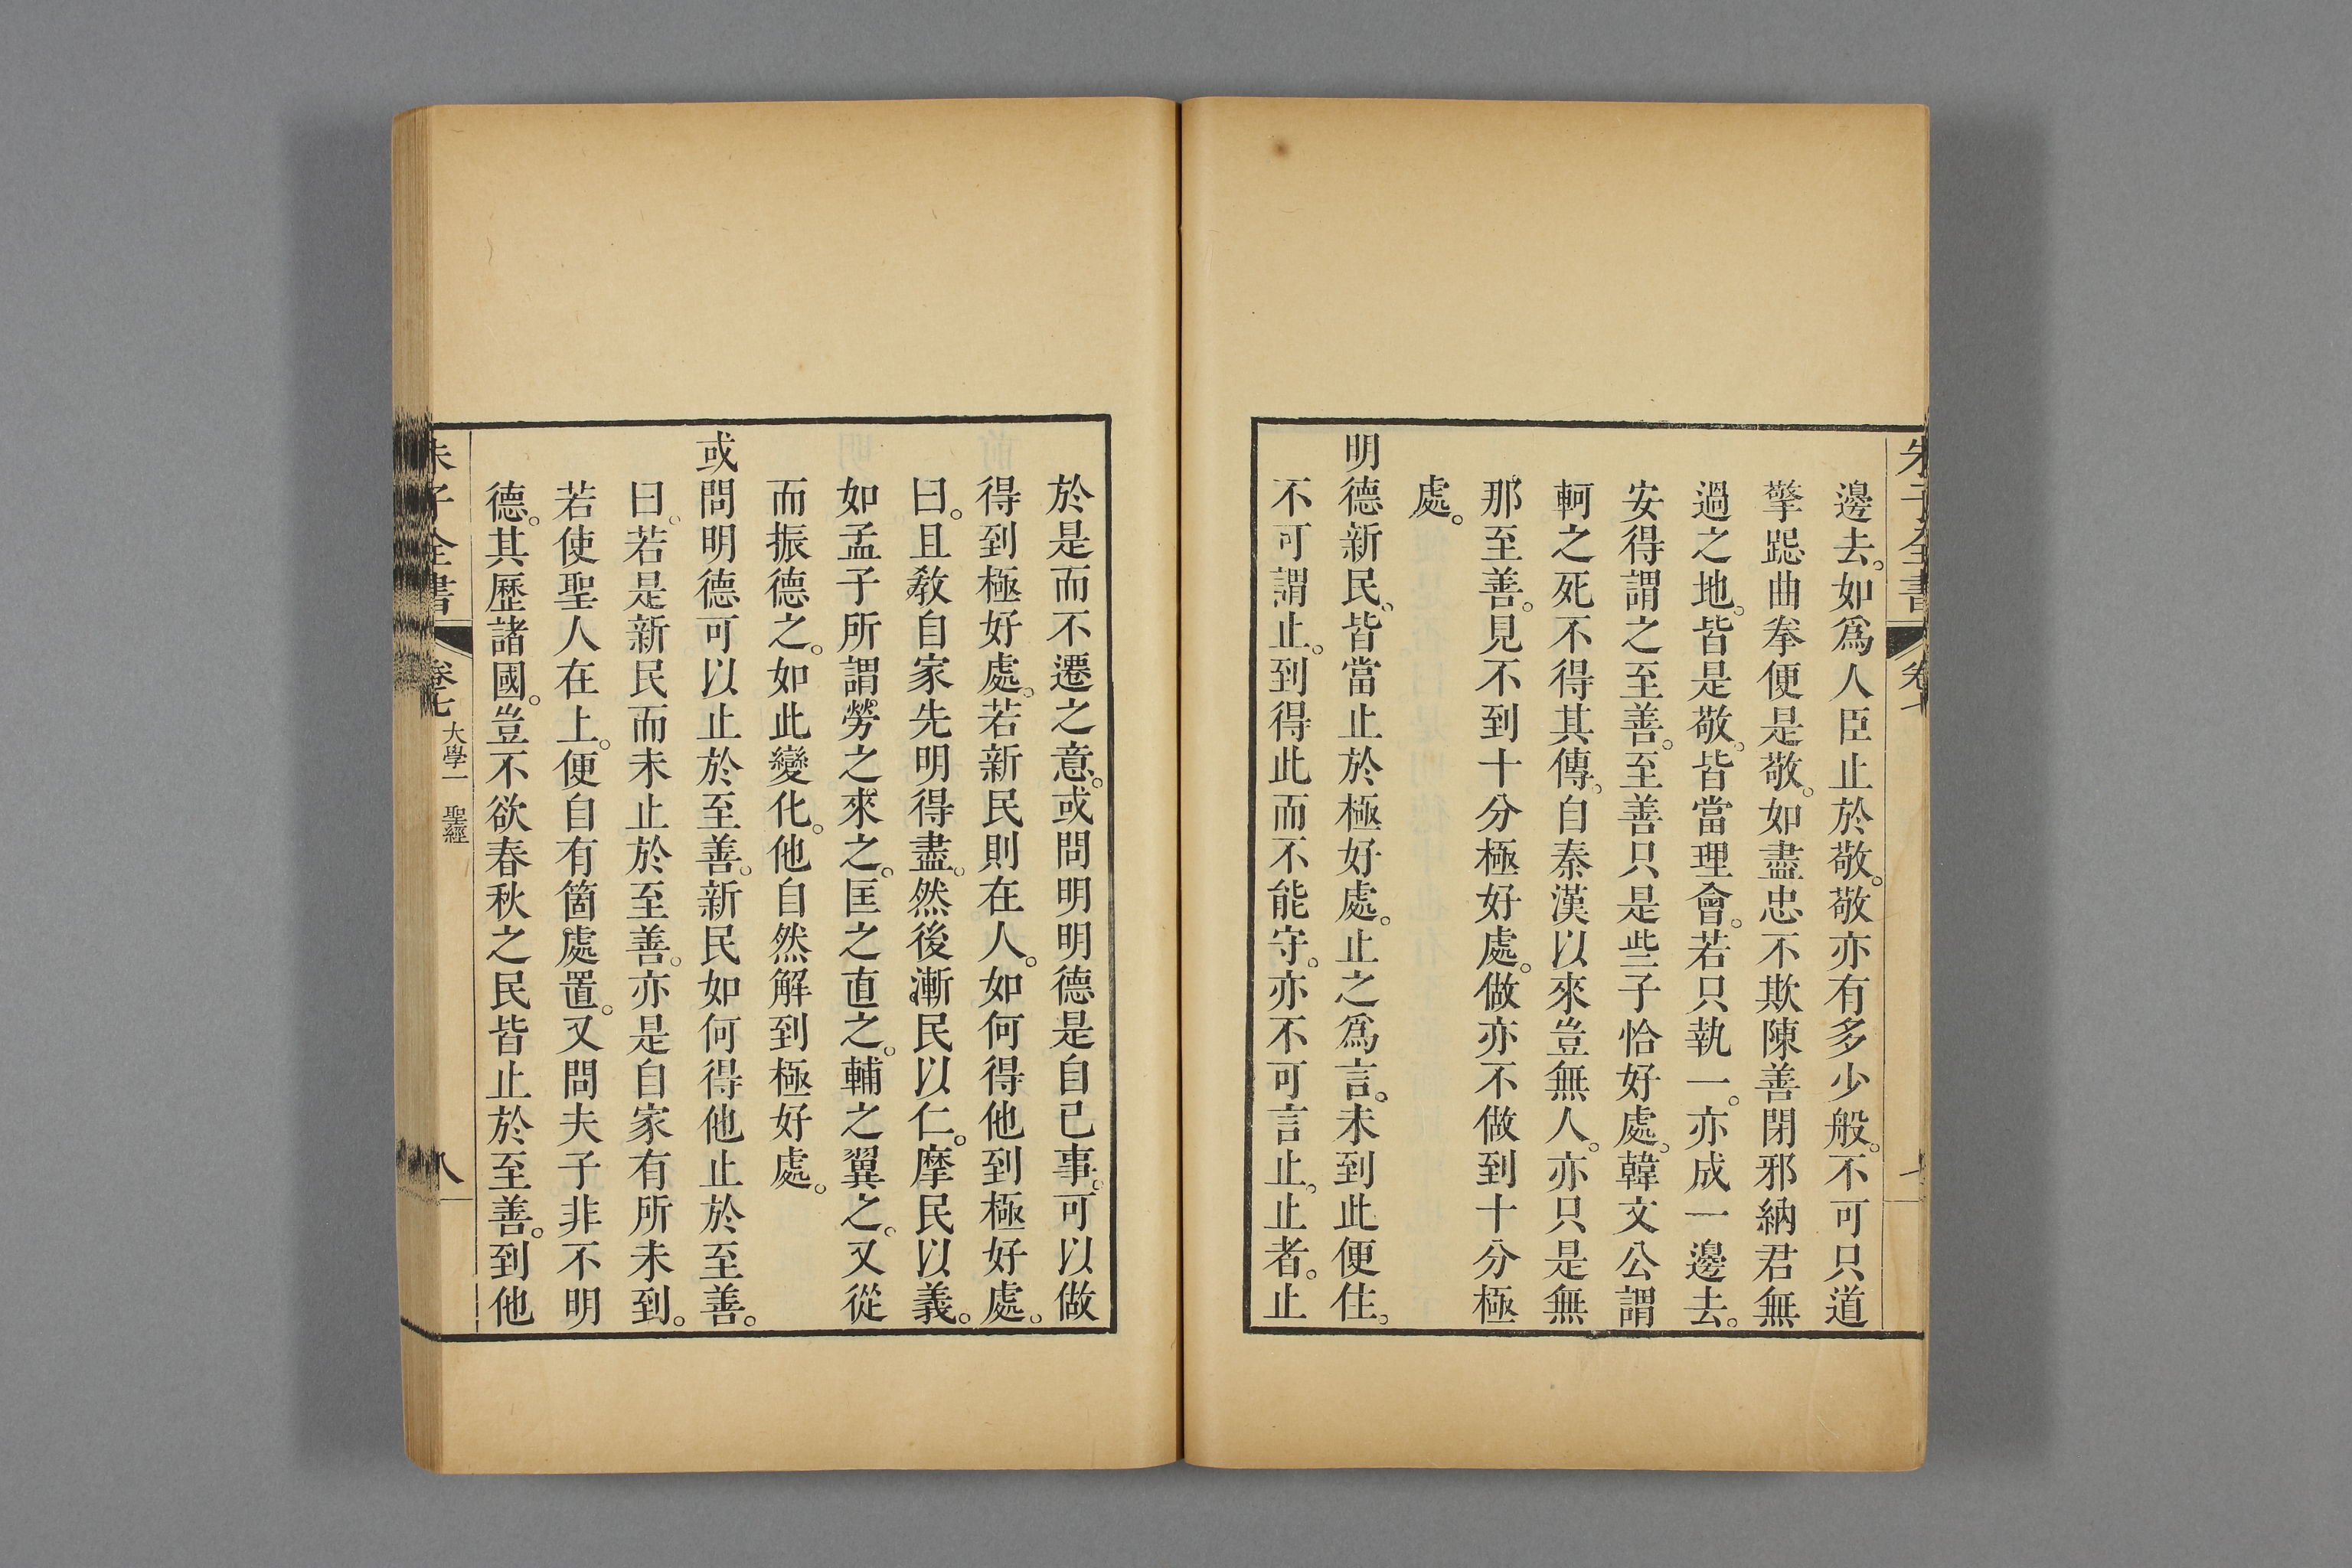 朱子全書 卷七
邊去。如爲人臣止於敬。敬亦有多少般。不可只道
擎跽曲拳便是敬。如盡忠不欺陳善閉邪納君無
過之地。皆是敬。皆當理會。若只執一。亦成一邊去。
安得謂之至善。至善只是些子恰好處。韓文公謂
軻之死不得其傳。自秦漢以來豈無人。亦只是無
那至善。見不到十分極好處。做亦不做到十分極
處。
明德新民。皆當止於極好處。止之爲言。未到此便住。
不可謂止。到得此而不能守。亦不可言止。止者。止
於是而不遷之意。或問明明德是自已事。可以做
得到極好處。若新民則在人。如何得他到極好處。
曰。且敎自家先明得盡。然後漸民以仁。摩民以義。
如孟子所謂勞之來之。匡之直之。輔之翼之。又從
而振德之。如此變化。他自然解到極好處。
或問明德可以止於至善。新民如何得他止於至善。
曰。若是新民而未止於至善。亦是自家有所未到。
若使聖人在上。便自有箇處置。又問夫子非不明
德。其歷諸國。豈不欲春秋之民皆止於至善。到他
朱子全書 卷七 大學一 聖經 八